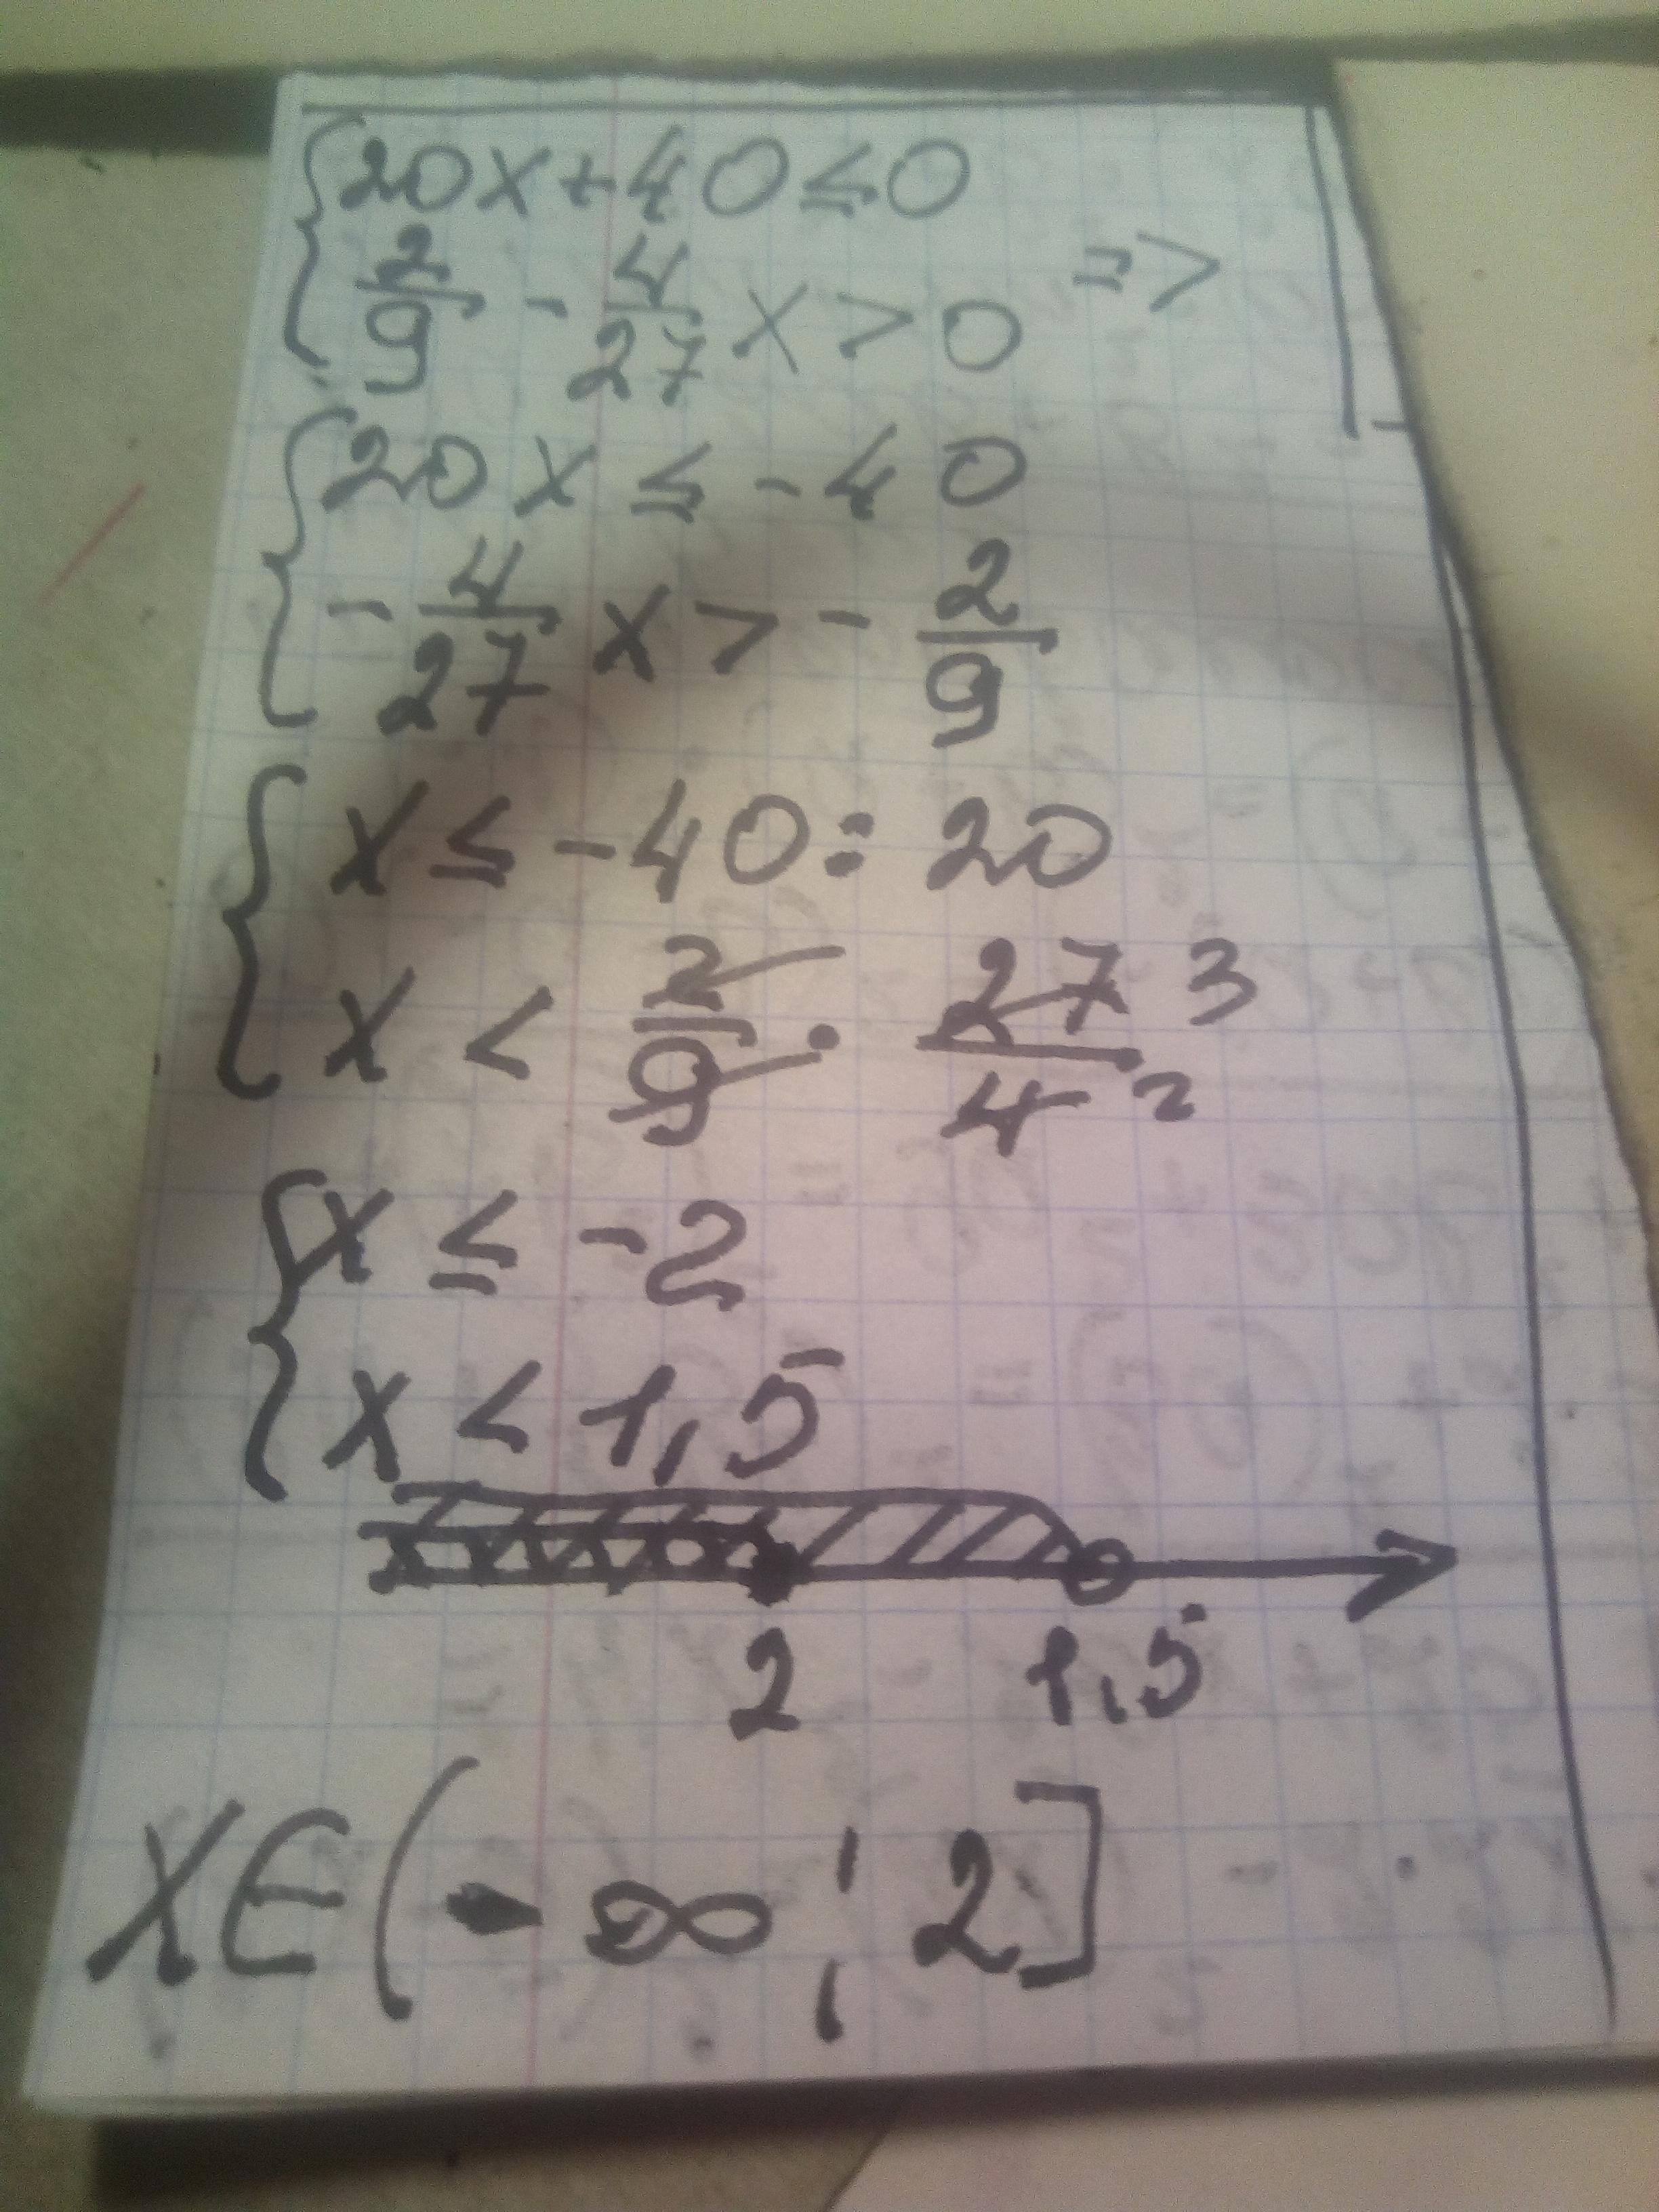 {20x+40≤0
{2/9 - 4/27 x > 0 =>
{20x ≤ -40
{-4/27 x > - 2/9
{x ≤ -40 : 20
{x < 2/9 · 27/4 3 2
{x ≤ -2
{x < 1,5
2 1,5
XЄ(-∞; 2]